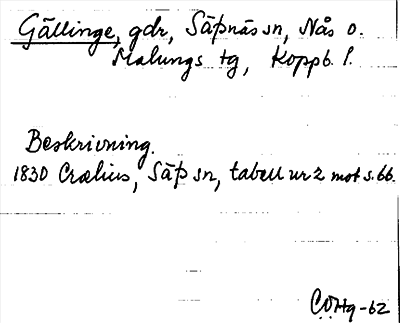 Gällinge, gdr, Säfsnäs sn, Nås o.
Malungs tg, Koppb. l.
Beskrivning.
1830 Crælius, Säfs sn, tabell nr 2 mot s. 66.
COHg-62